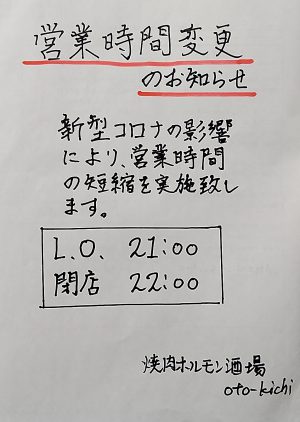 営業時間変更
のお知らせ
新型コロナの影響
により、営業時間
の短縮を実施致し
ます。
L.O. 21:00
閉店 22:00
焼肉ホルモン酒場
oto-kichi